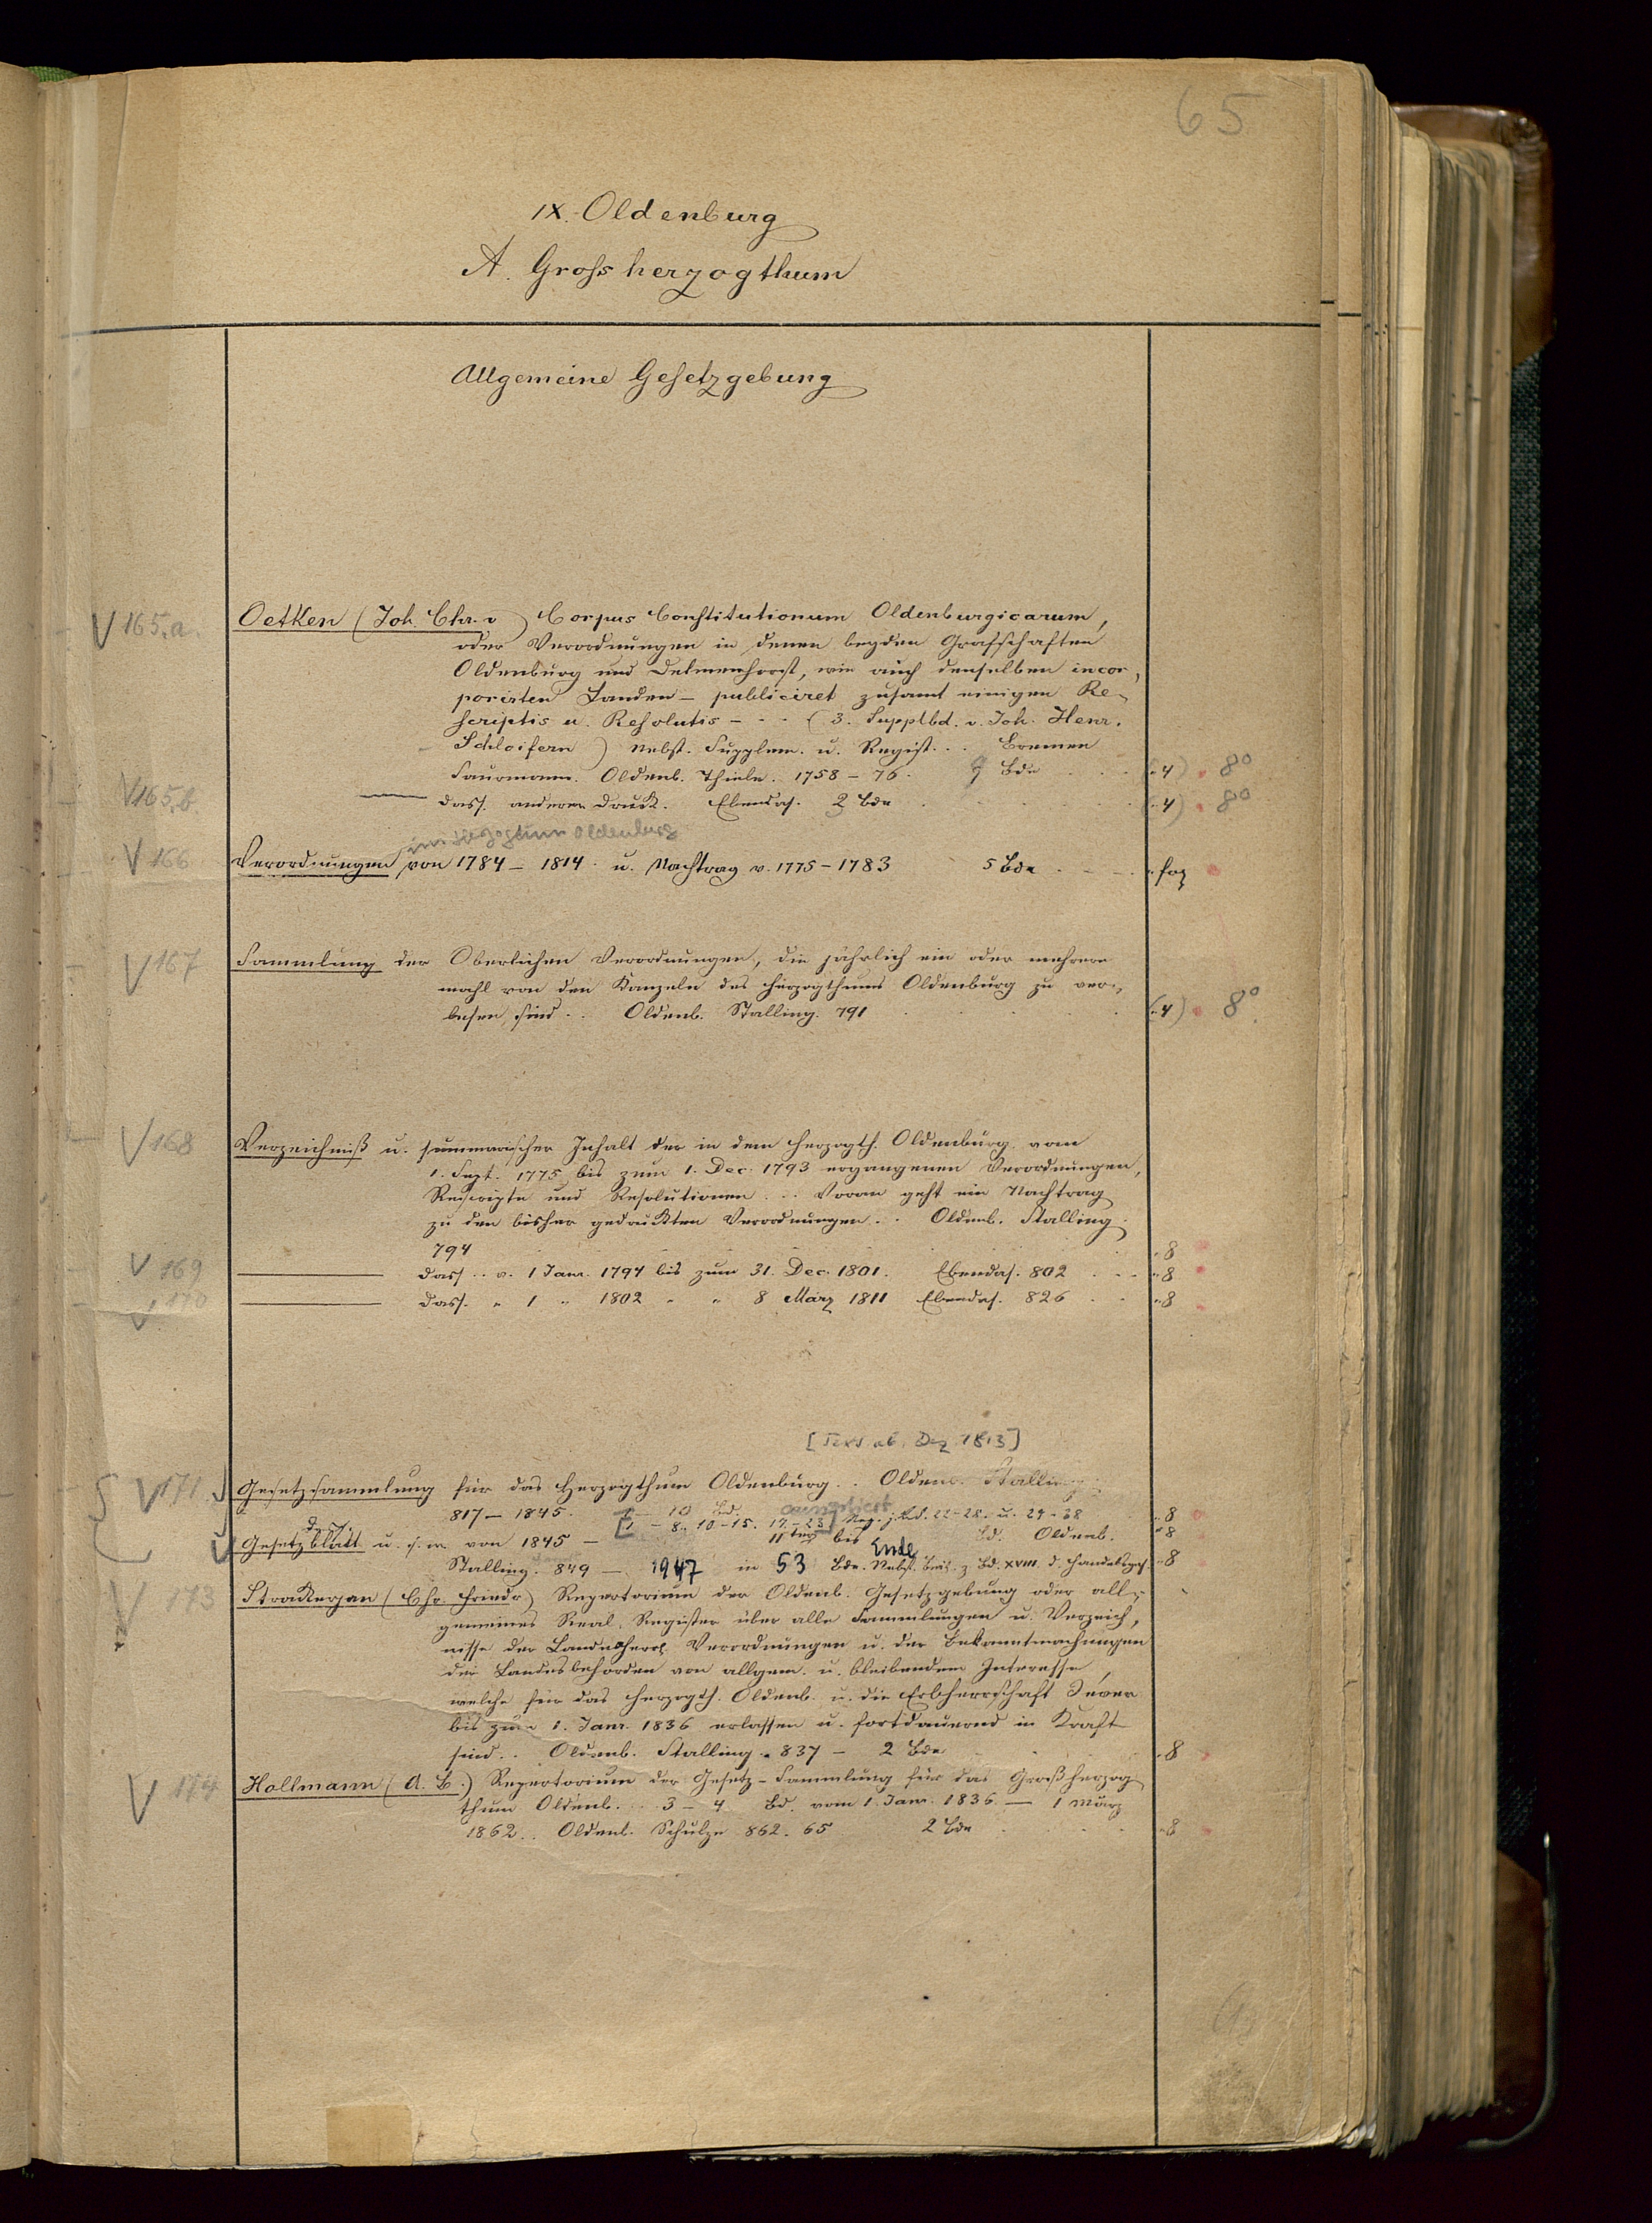 65
IX. Oldenburg
A. Grossherzogthum
Allgemeine Gesetzgebung
V 165,a. Oetken (Joh. Chr. v) Corpus Constitutionum Oldenburgicarum,
oder Verordnungen in denen beyden Grafschaften
Oldenburg und Delmenhorst, wie auch denselben incor,
porirten Landen – publiciret zusamt einigen Re-
scriptis u. Resolutis - - - (3. Supplbd. v. Joh. Henr.
Schloifern) Nebst. Supplem. u. Regist... Bremen
Saurmann. Oldenb. Thiele. 1758 – 76. Bde (4) 8°
V 165,b. dass. anderer Druck. Ebendas. Bde (4) 8°
im Herzogtum Oldenburg
V 166 Verordnungen von 1784 – 1814. u. Nachtrag v. 1775 – 1783 5 Bde
V 167 Sammlung der Oberlichen Verordnungen, die jährlich ein oder mehrere
mahl von den Kanzeln des Herzogthums Oldenburg zu ver-
lesen sind... Oldenb. Stalling. 791 (4) 8°
V 168 Verzeichniß u. summarischer Inhalt der in dem Herzogth. Oldenburg vom
1. Sept. 1775 bis zum 1. Dec. 1793 ergangenen Verordnungen,
Rescripte und Resolutionen... Voran geht ein Nachtrag
zu den bisher gedruckten Verordnungen.. Oldenb. Stalling.
794 8
V 169 dass.. v. 1 Janr. 1794 bis zum 31. Dec. 1801. Ebendas. 802 8
V 170 dass. " 1 " 1802 " " 8 März 1811 Ebendas. 826 8
[ ab Dez. 1813]
V 171 Gesetzsammlung für das Herzogthum Oldenburg.. Oldenb. Stalling.
817 – 1845. 10 Bd. 8
8, 10-15. 17-23] Reg. u. 29-38
Gesetzblatt u. s. w. von 1845 – 11ter bis Ende Bd. Oldenb. 8
Stalling. 849 – 1947 in 53 Bde. Nebst. z Bd. XVIII d. Handelsges. 8
V 173 Strakerjan (Chr. Friedr) Repertorium der Oldenb. Gesetzgebung oder all-
gemeines Real, Register über alle Sammlungen u. Verzeich,
nisse der Landesherrl. Verordnungen u. der Bekanntmachungen
der Landesbehörden von allgem. u. bleibendem Interesse,
welche für das Herzogth. Oldenb. u. die Erbherrschaft Jever
bis zum 1. Janr. 1836 erlassen u. fortdauernd in Kraft
sind.. Oldenb. Stalling. 837 – 2 Bde 8
V 174 Hollmann (A. L.) Repertorium der Gesetz-Sammlung für das Großherzog
thum Oldenb... 3 – 4 Bd. vom 1. Janr. 1836 – 1 März
1862.. Oldenb. Schulze 862. 65 2 Bde 8